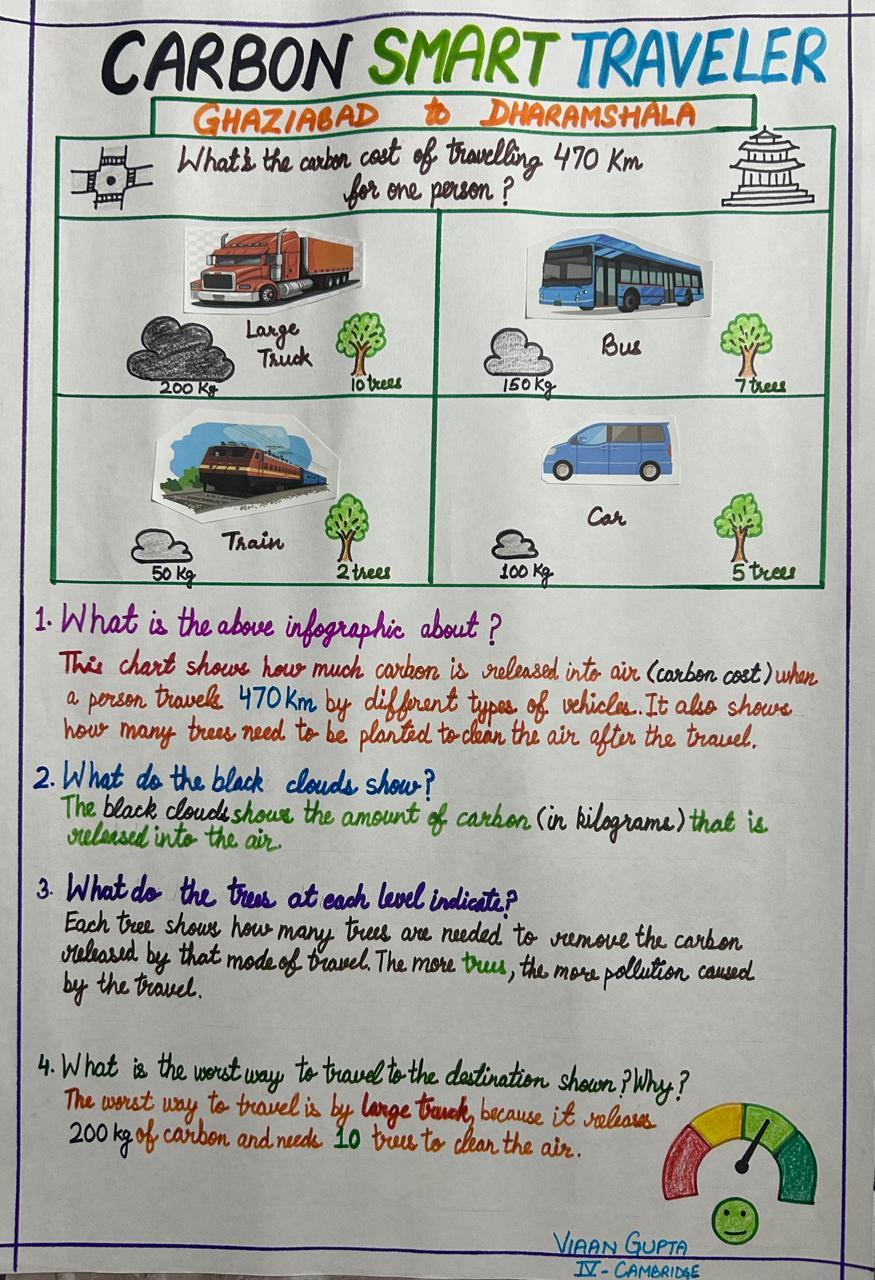 CARBON SMART TRAVELER
GHAZIABAD to DHARAMSHALA
What's the carbon cost of travelling 470 Km
for one person ?
Large
Truck
200 Kg
10 trees
Bus
150 Kg
7 trees
Train
50 Kg
2 trees
Car
100 Kg
5 trees
1. What is the above infographic about ?
This chart shows how much carbon is released into air (carbon cost) when
a person travels 470 Km by different types of vehicles. It also shows
how many trees need to be planted to clean the air after the travel.
2. What do the black clouds show?
The black clouds shows the amount of carbon (in kilograms) that is
released into the air.
3. What do the trees at each level indicate?
Each tree shows how many trees are needed to remove the carbon
released by that mode of travel. The more trees, the more pollution caused
by the travel.
4. What is the worst way to travel to the destination shown? Why?
The worst way to travel is by large truck, because it releases
200 kg of carbon and needs 10 trees to clean the air.
VIAAN GUPTA
IV - CAMBRIDGE